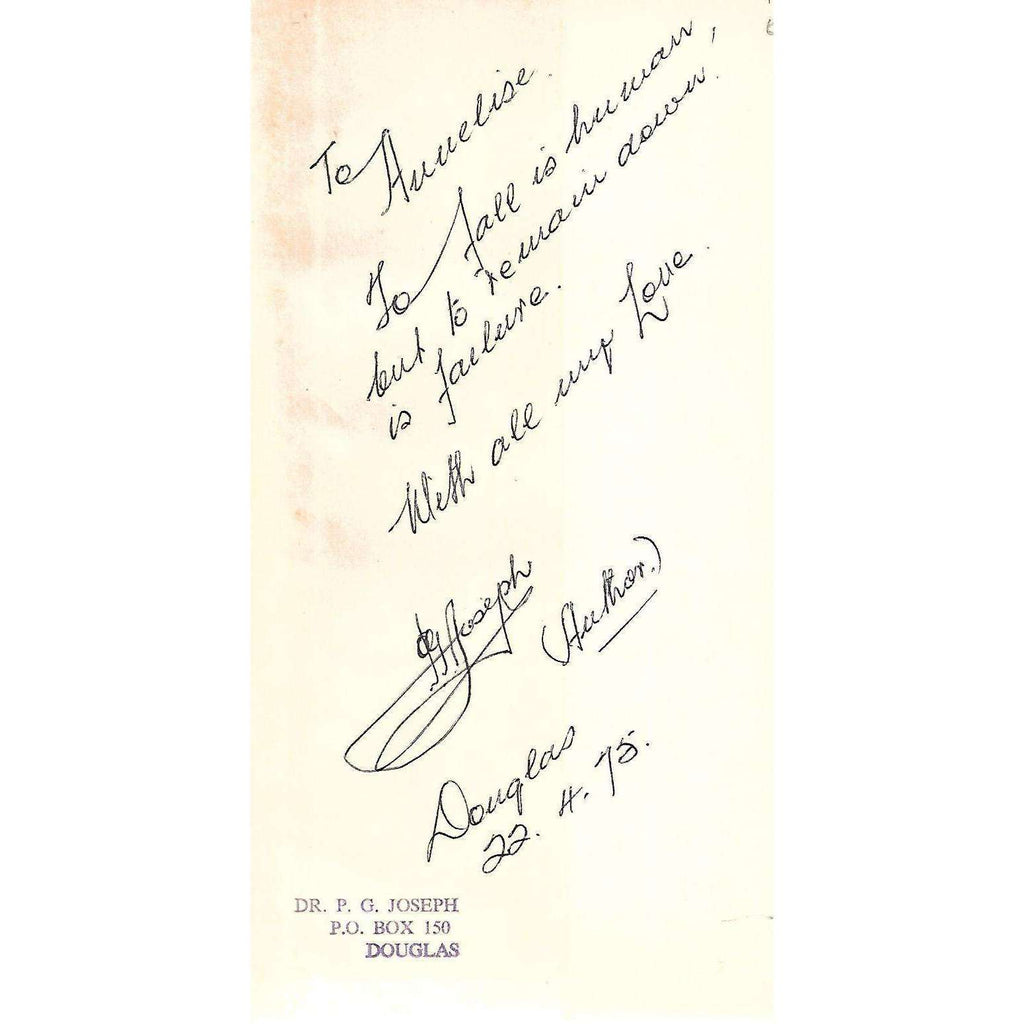 To Annelise.
To fall is human,
but to remain down.
is failure.
With all my Love.
Joseph
(Author.)
Douglas
22. 4. 75.
DR. P. G. JOSEPH
P.O. BOX 150
DOUGLAS